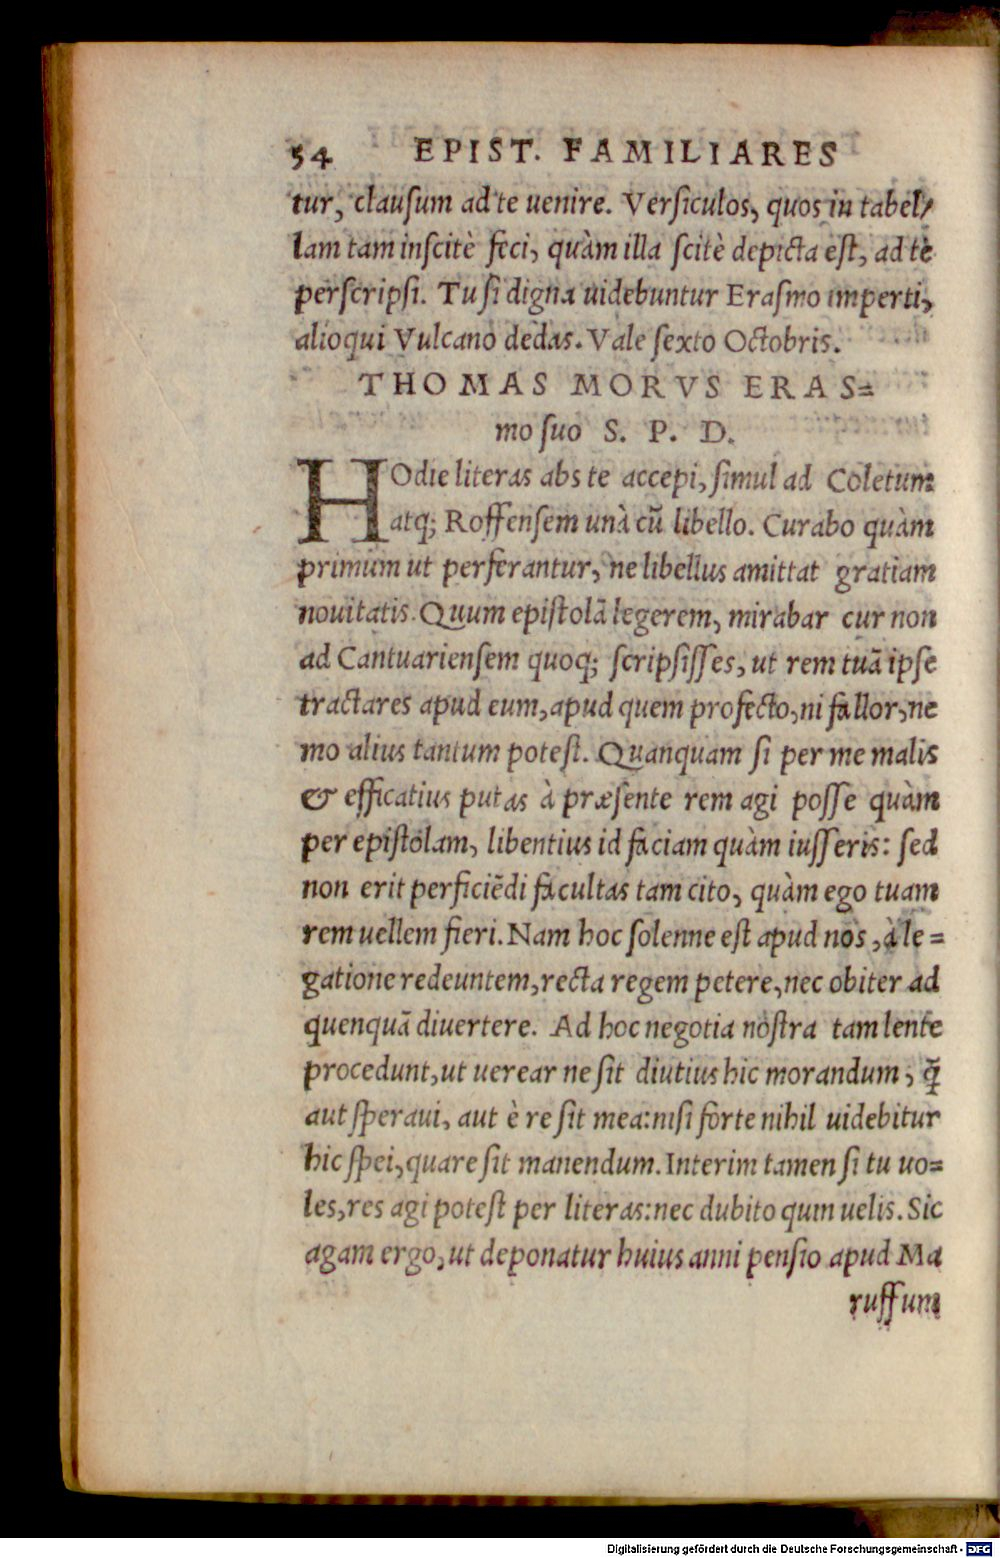 54 EPIST. FAMILIARES
tur, clausum ad te uenire. Versiculos, quos in tabel/
lam tam inscitè feci, quàm illa scitè depicta est, ad te
perscripsi. Tu si digna uidebuntur Erasmo imperti,
alioqui Vulcano dedas. Vale sexto Octobris.
THOMAS MORVS ERAS=
mo suo S. P. D.
HOdie literas abs te accepi, simul ad Coletum
atq; Roffensem unà cū libello. Curabo quàm
primum ut perferantur, ne libellus amittat gratiam
nouitatis. Quum epistolā legerem, mirabar cur non
ad Cantuariensem quoq; scripsisses, ut rem tuā ipse
tractares apud eum, apud quem profecto, ni fallor, ne
mo alius tantum potest. Quanquam si per me malis
& efficatius putas à præsente rem agi posse quàm
per epistolam, libentius id faciam quàm iusseris: sed
non erit perficiēdi facultas tam cito, quàm ego tuam
rem uellem fieri. Nam hoc solenne est apud nos, à le=
gatione redeuntem, recta regem petere, nec obiter ad
quenquā diuertere. Ad hoc negotia nostra tam lente
procedunt, ut uerear ne sit diutius hic morandum, q̄
aut speraui, aut è re sit mea: nisi forte nihil uidebitur
hic spei, quare sit manendum. Interim tamen si tu uo=
les, res agi potest per literas: nec dubito qum uelis. Sic
agam ergo, ut deponatur huius anni pensio apud Ma
ruffum
Digitalisierung gefördert durch die Deutsche Forschungsgemeinschaft - DFG